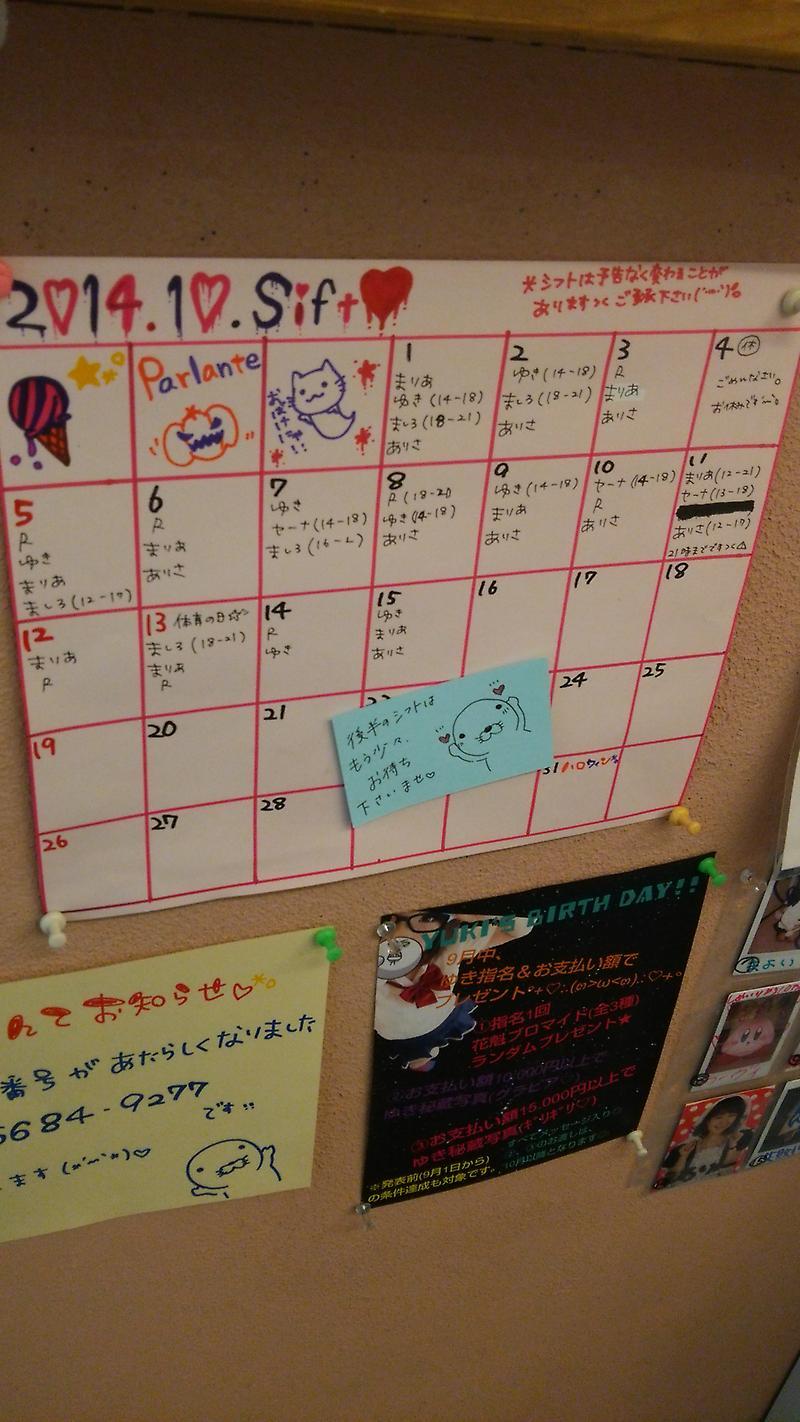 2014.10.Sift
*シフトは予告なく変わることが
ありますので ご了承下さい
Parlante
おばけ
1
まりあ
ゆき(14-18)
ましろ(18-21)
ありさ
2
ゆき(14-18)
ましろ(18-21)
ありさ
3
R
まりあ
ありさ
4 休
ごめんなさい。
お休みです
5
R
ゆき
まりあ
ましろ(12-17)
6
R
まりあ
ありさ
7
ゆき
セーナ(14-18)
ましろ(16-L)
8
R(18-21)
ゆき(14-18)
ありさ
9
ゆき(14-18)
まりあ
ありさ
10
セーナ(14-18)
R
ありさ
11
まりあ(12-21)
セーナ(13-18)
ありさ(12-17)
21時までです
12
まりあ
R
13 体育の日
ましろ(18-21)
まりあ
R
14
R
ゆき
15
ゆき
まりあ
ありさ
16
17
18
19
20
21
22
24
25
26
27
28
31 ハロウィン
後半のシフトは
もう少々、
お待ち
下さいませ♡
にてお知らせ♡
番号があたらしくなりました
5684-9277
です!!
ます
YUKI'S BIRTH DAY!!
9月中、
ゆき指名&お支払い額で
プレゼント*+♡:.(ο>ω<ο).:♡+。
①指名1回
花魁ブロマイド(全3種)
ランダムプレゼント★
②お支払い額10,000円以上で
ゆき秘蔵写真(グラビア♡)
③お支払い額15,000円以上で
ゆき秘蔵写真(ギリギリ♡)
すべてメッセージ入り
10月以降となります
※発表前(9月1日から)
の条件達成も対象です。